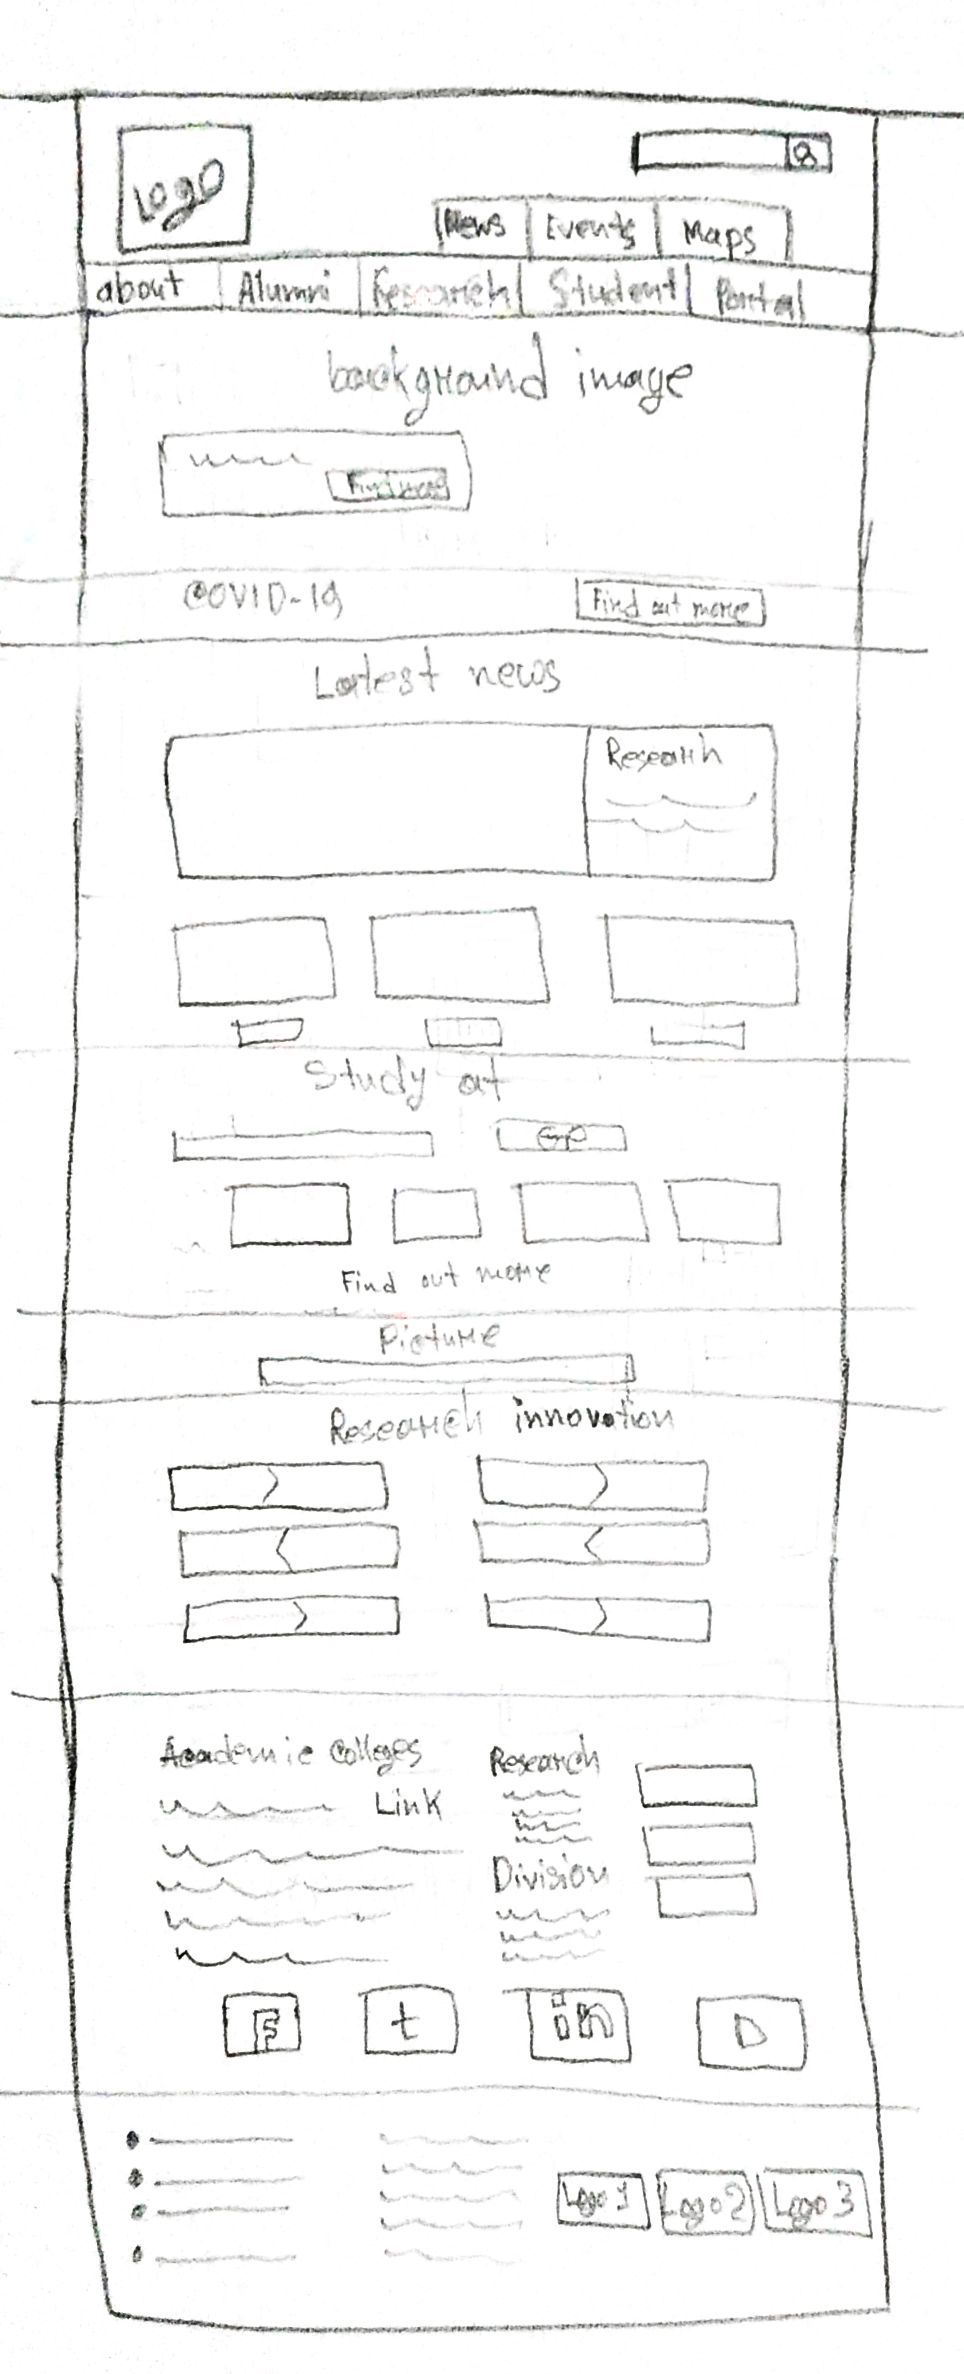 Logo
News Events Maps
about Alumni Research Student Portal
background image
Find more
COVID-19 Find out more
Latest news
Research
Study at
GO
Find out more
Picture
Research innovation
Academic Colleges Research
Link
Division
f t in D
Logo 1 Logo 2 Logo 3